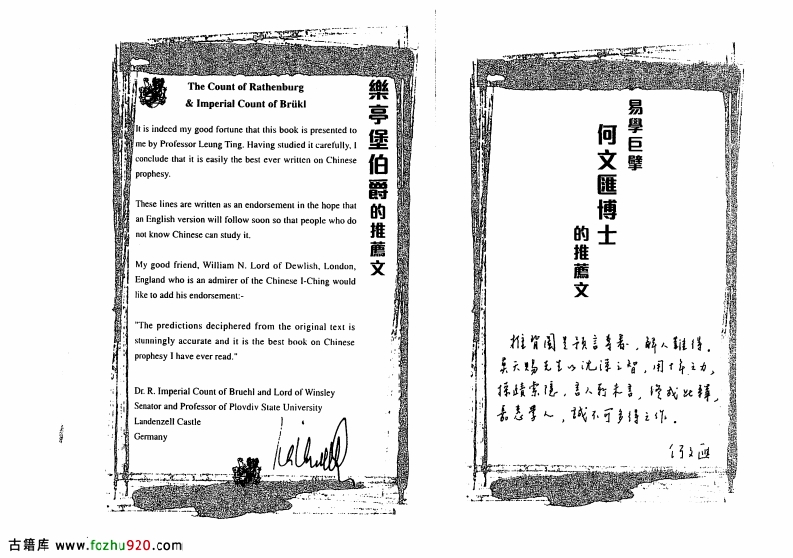 The Count of Rathenburg
& Imperial Count of Brükl
It is indeed my good fortune that this book is presented to
me by Professor Leung Ting. Having studied it carefully, I
conclude that it is easily the best ever written on Chinese
prophesy.
These lines are written as an endorsement in the hope that
an English version will follow soon so that people who do
not know Chinese can study it.
My good friend, William N. Lord of Dewlish, London,
England who is an admirer of the Chinese I-Ching would
like to add his endorsement:-
"The predictions deciphered from the original text is
stunningly accurate and it is the best book on Chinese
prophesy I have ever read."
Dr. R. Imperial Count of Bruehl and Lord of Winsley
Senator and Professor of Plovdiv State University
Landenzell Castle
Germany
樂亭堡伯爵的推薦文
易學巨擘
何文匯博士
的推薦文
推背圖是預言專書，解人難得。
吳天賜先生以沈深之智，用十年之力，
探賾索隱，言人所未言，終成此轉，
嘉惠學人，誠不可多得之作。
何文匯
古籍库 www.fozhu920.com